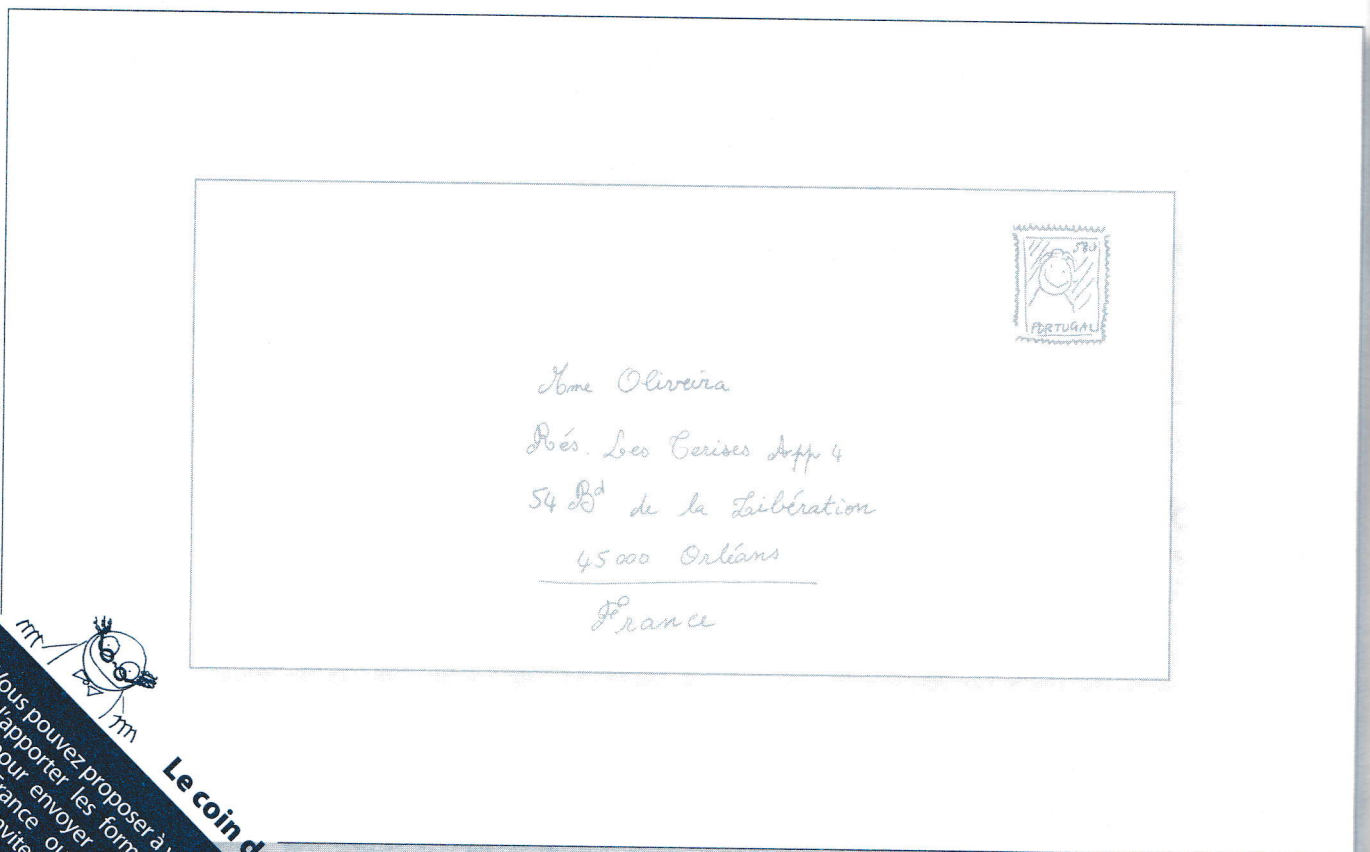 58
PORTUGAL
Mme Oliveira
Rés. Les Cerises App 4
54 Bd de la Libération
45000 Orléans
France
Le coin d
Vous pouvez proposer à
d'apporter les form
pour envoyer
France ou